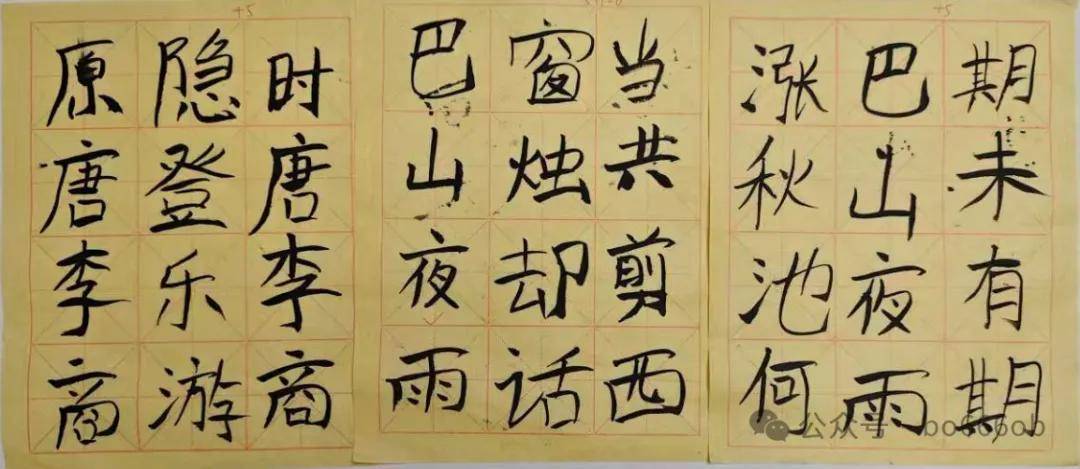 +5
期未有期
巴山夜雨
涨秋池何
当共剪西
窗烛却话
巴山夜雨
+5
时唐李商
隐登乐游
原唐李商
公众号